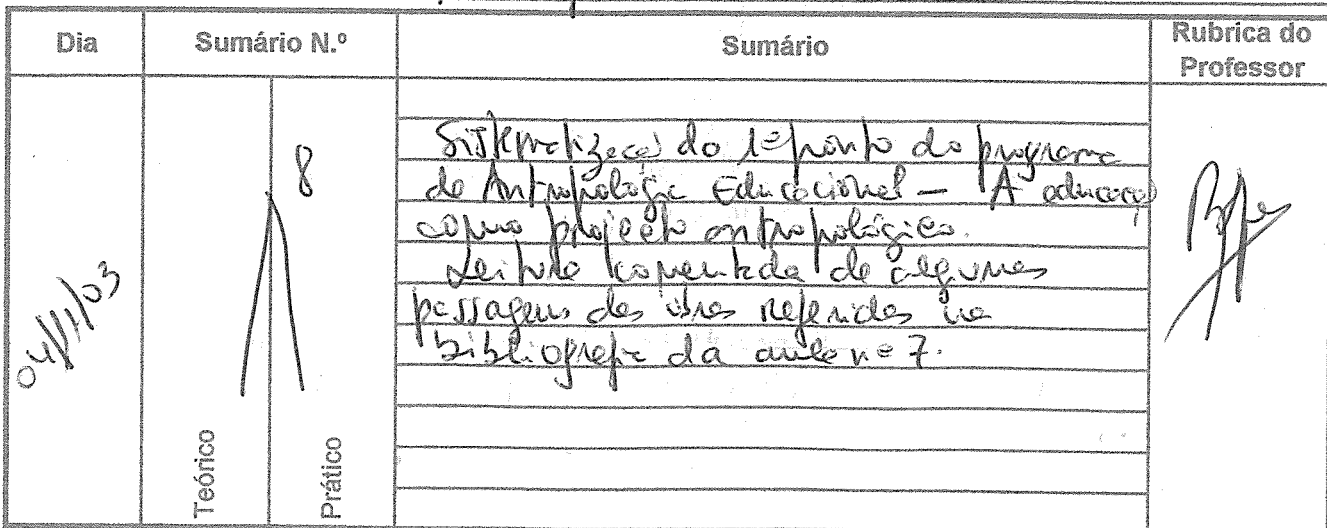 Dia
Sumário N.º
Sumário
Rubrica do
Professor
04/11/03
8
Sistematização do 1º ponto do programa
de Antropologia Educacional – A educação
como projecto antropológico.
Leitura comentada de algumas
passagens das obras referidas na
bibliografia da aula nº 7.
Teórico
Prático